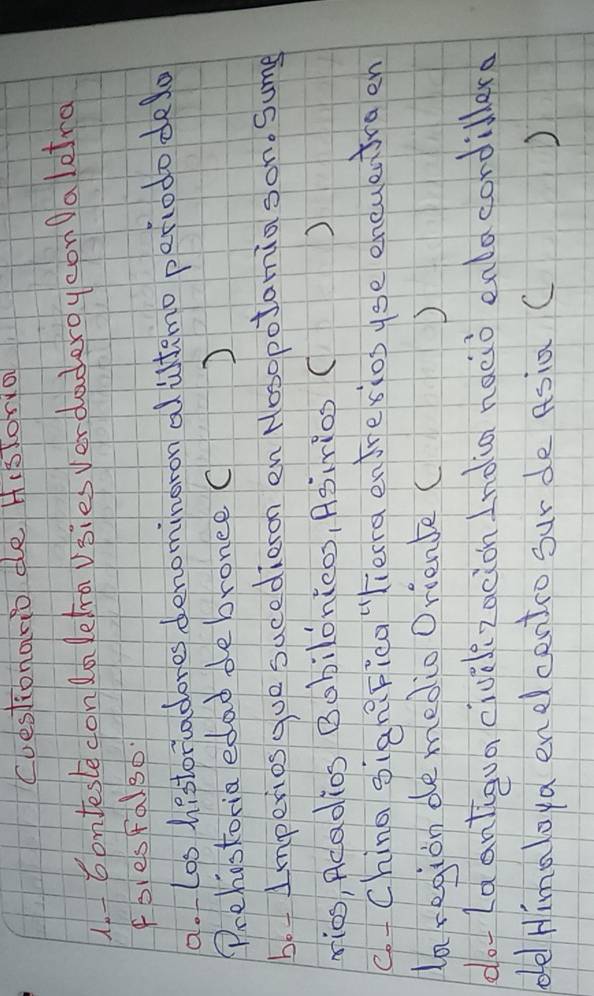 Cuestionario de Historia
1.- Conteste con la letra V si es Verdadero y con la letra
F si es Falso.
a.- Los historiadores denominaron al último periodo de la
Prehistoria edad de bronce ( )
b.- Imperios que sucedieron en Mosopotamia son. Sume
rios, Acadios Babilónicos, Asirios ( )
c.- China significa "Tierra entre rios y se encuentra en
la región de medio Oriente ( )
d.- La antigua civilización India nació en la cordillera
del Himalaya en el centro sur de Asia ( )